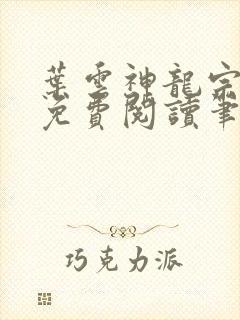 葉雲神龍宗
免費閱讀筆
巧克力派